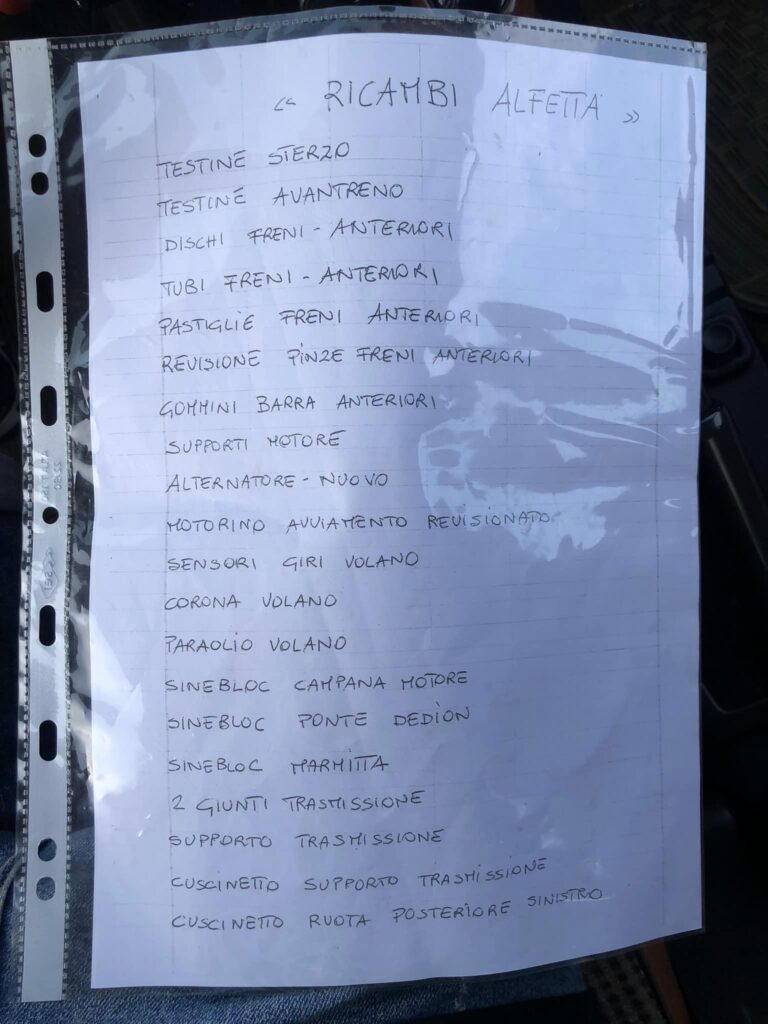 « RICAMBI ALFETTA »
TESTINE STERZO
TESTINE AVANTRENO
DISCHI FRENI - ANTERIORI
TUBI FRENI - ANTERIORI
PASTIGLIE FRENI ANTERIORI
REVISIONE PINZE FRENI ANTERIORI
GOMMINI BARRA ANTERIORI
SUPPORTI MOTORE
ALTERNATORE - NUOVO
MOTORINO AVVIAMENTO REVISIONATO
SENSORI GIRI VOLANO
CORONA VOLANO
PARAOLIO VOLANO
SINEBLOC CAMPANA MOTORE
SINEBLOC PONTE DEDÌON
SINEBLOC MARMITTA
2 GIUNTI TRASMISSIONE
SUPPORTO TRASMISSIONE
CUSCINETTO SUPPORTO TRASMISSIONE
CUSCINETTO RUOTA POSTERIORE SINISTRO